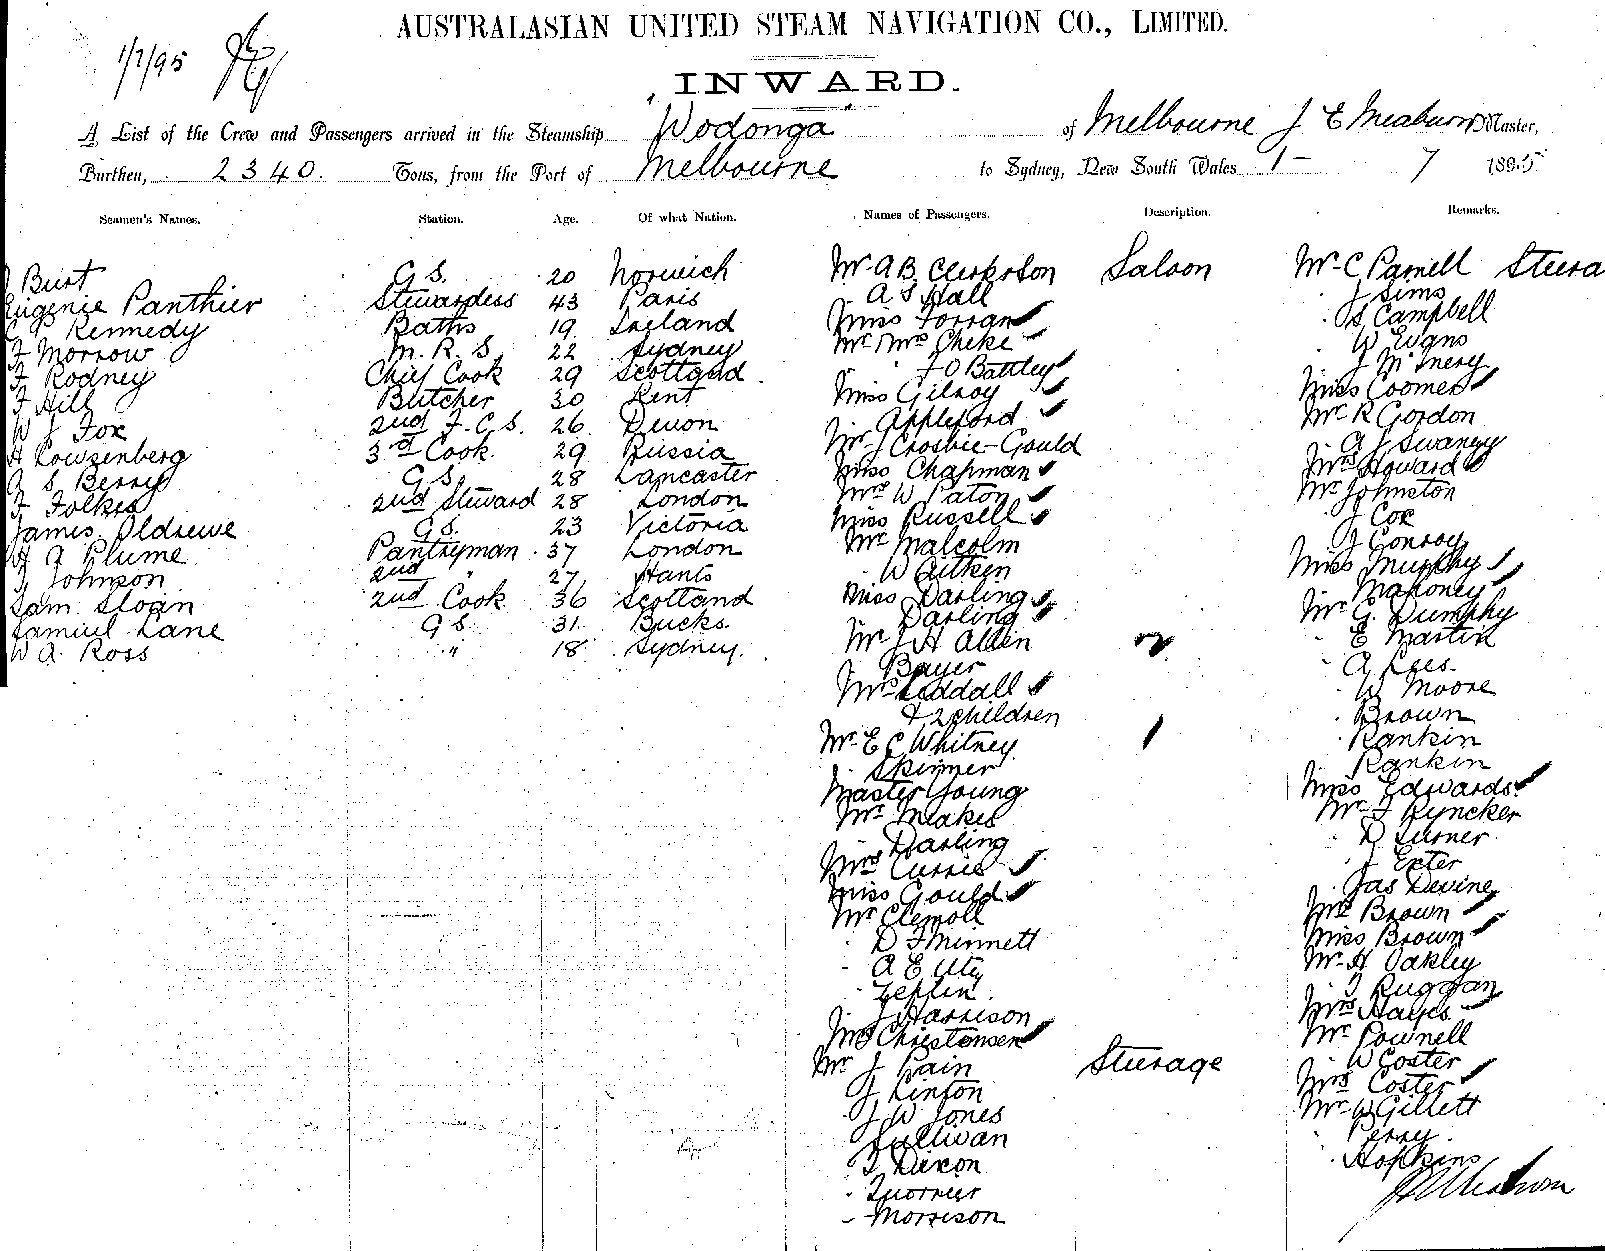 AUSTRALASIAN UNITED STEAM NAVIGATION CO., LIMITED.
1/7/95
INWARD.
A List of the Crew and Passengers arrived in the Steamship "Wodonga" of Melbourne J E Meaburn Master,
Burthen, 2340 Tons, from the Port of Melbourne to Sydney, New South Wales 1 - 7 1895
Seamen's Names. Station. Age. Of what Nation. Names of Passengers. Description. Remarks.
Burt G S. 20 Norwich
Eugenie Panthier Stewardess 43 Paris
Kennedy Baths 19 Ireland
F Morrow M. R. S. 22 Sydney
F Rodney Chief Cook 29 Scotland
F Hill Butcher 30 Kent
W J Fox 2nd F. C. S. 26 Devon
H Lowsenberg 3rd Cook 29 Russia
A S Berry G S 28 Lancaster
F Folkes 2nd Steward 28 London
James Oldreive G S. 23 Victoria
H A Plume Pantryman 37 London
J Johnson 2nd " 27 Hants
Sam Sloan 2nd Cook 36 Scotland
Samuel Lane G S 31 Bucks
W A Ross " 18 Sydney
Mr A B Clerkston Saloon
A S Hall
Miss Forran
Mr Mrs Cheke
F O Battley
Miss Gilroy
Appleford
Mr J Crosbie-Gould
Miss Chapman
Mrs W Paton
Miss Russell
Mr Malcolm
W Aitken
Miss Darling
Darling
Mr J H Allen
Bayer
Mrs Liddall
& 2 children
Mr E C Whitney
Skinner
Master Young
Mr Meakes
Darling
Mrs Currie
Miss Gould
Mr Clemoll
D F Minnett
A E Uty
Zepplin
J Harrison
Mrs Christensen
Mr J Pain Steerage
J Linton
J W Jones
Sullivan
T Dixon
Morrison
Mr C Parnell Steera
J Sims
S Campbell
W Evans
J McInery
Miss Coomer
Mr R Gordon
A J Swaney
Mrs Howard
Mr Johnston
J Cox
J Conroy
Miss Murphy
Mahoney
Mr G. Dumphy
E Martin
A Lees
W Moore
Brown
Rankin
Rankin
Miss Edwards
Mr F Ryncker
D Turner
J Exter
Jas Devine
Mrs Brown
Miss Brown
Mr H Oakley
J Ruggan
Mrs Hayes
Mr Pownell
W Coster
Mrs Coster
Mr W Gillett
Perry
Hopkins